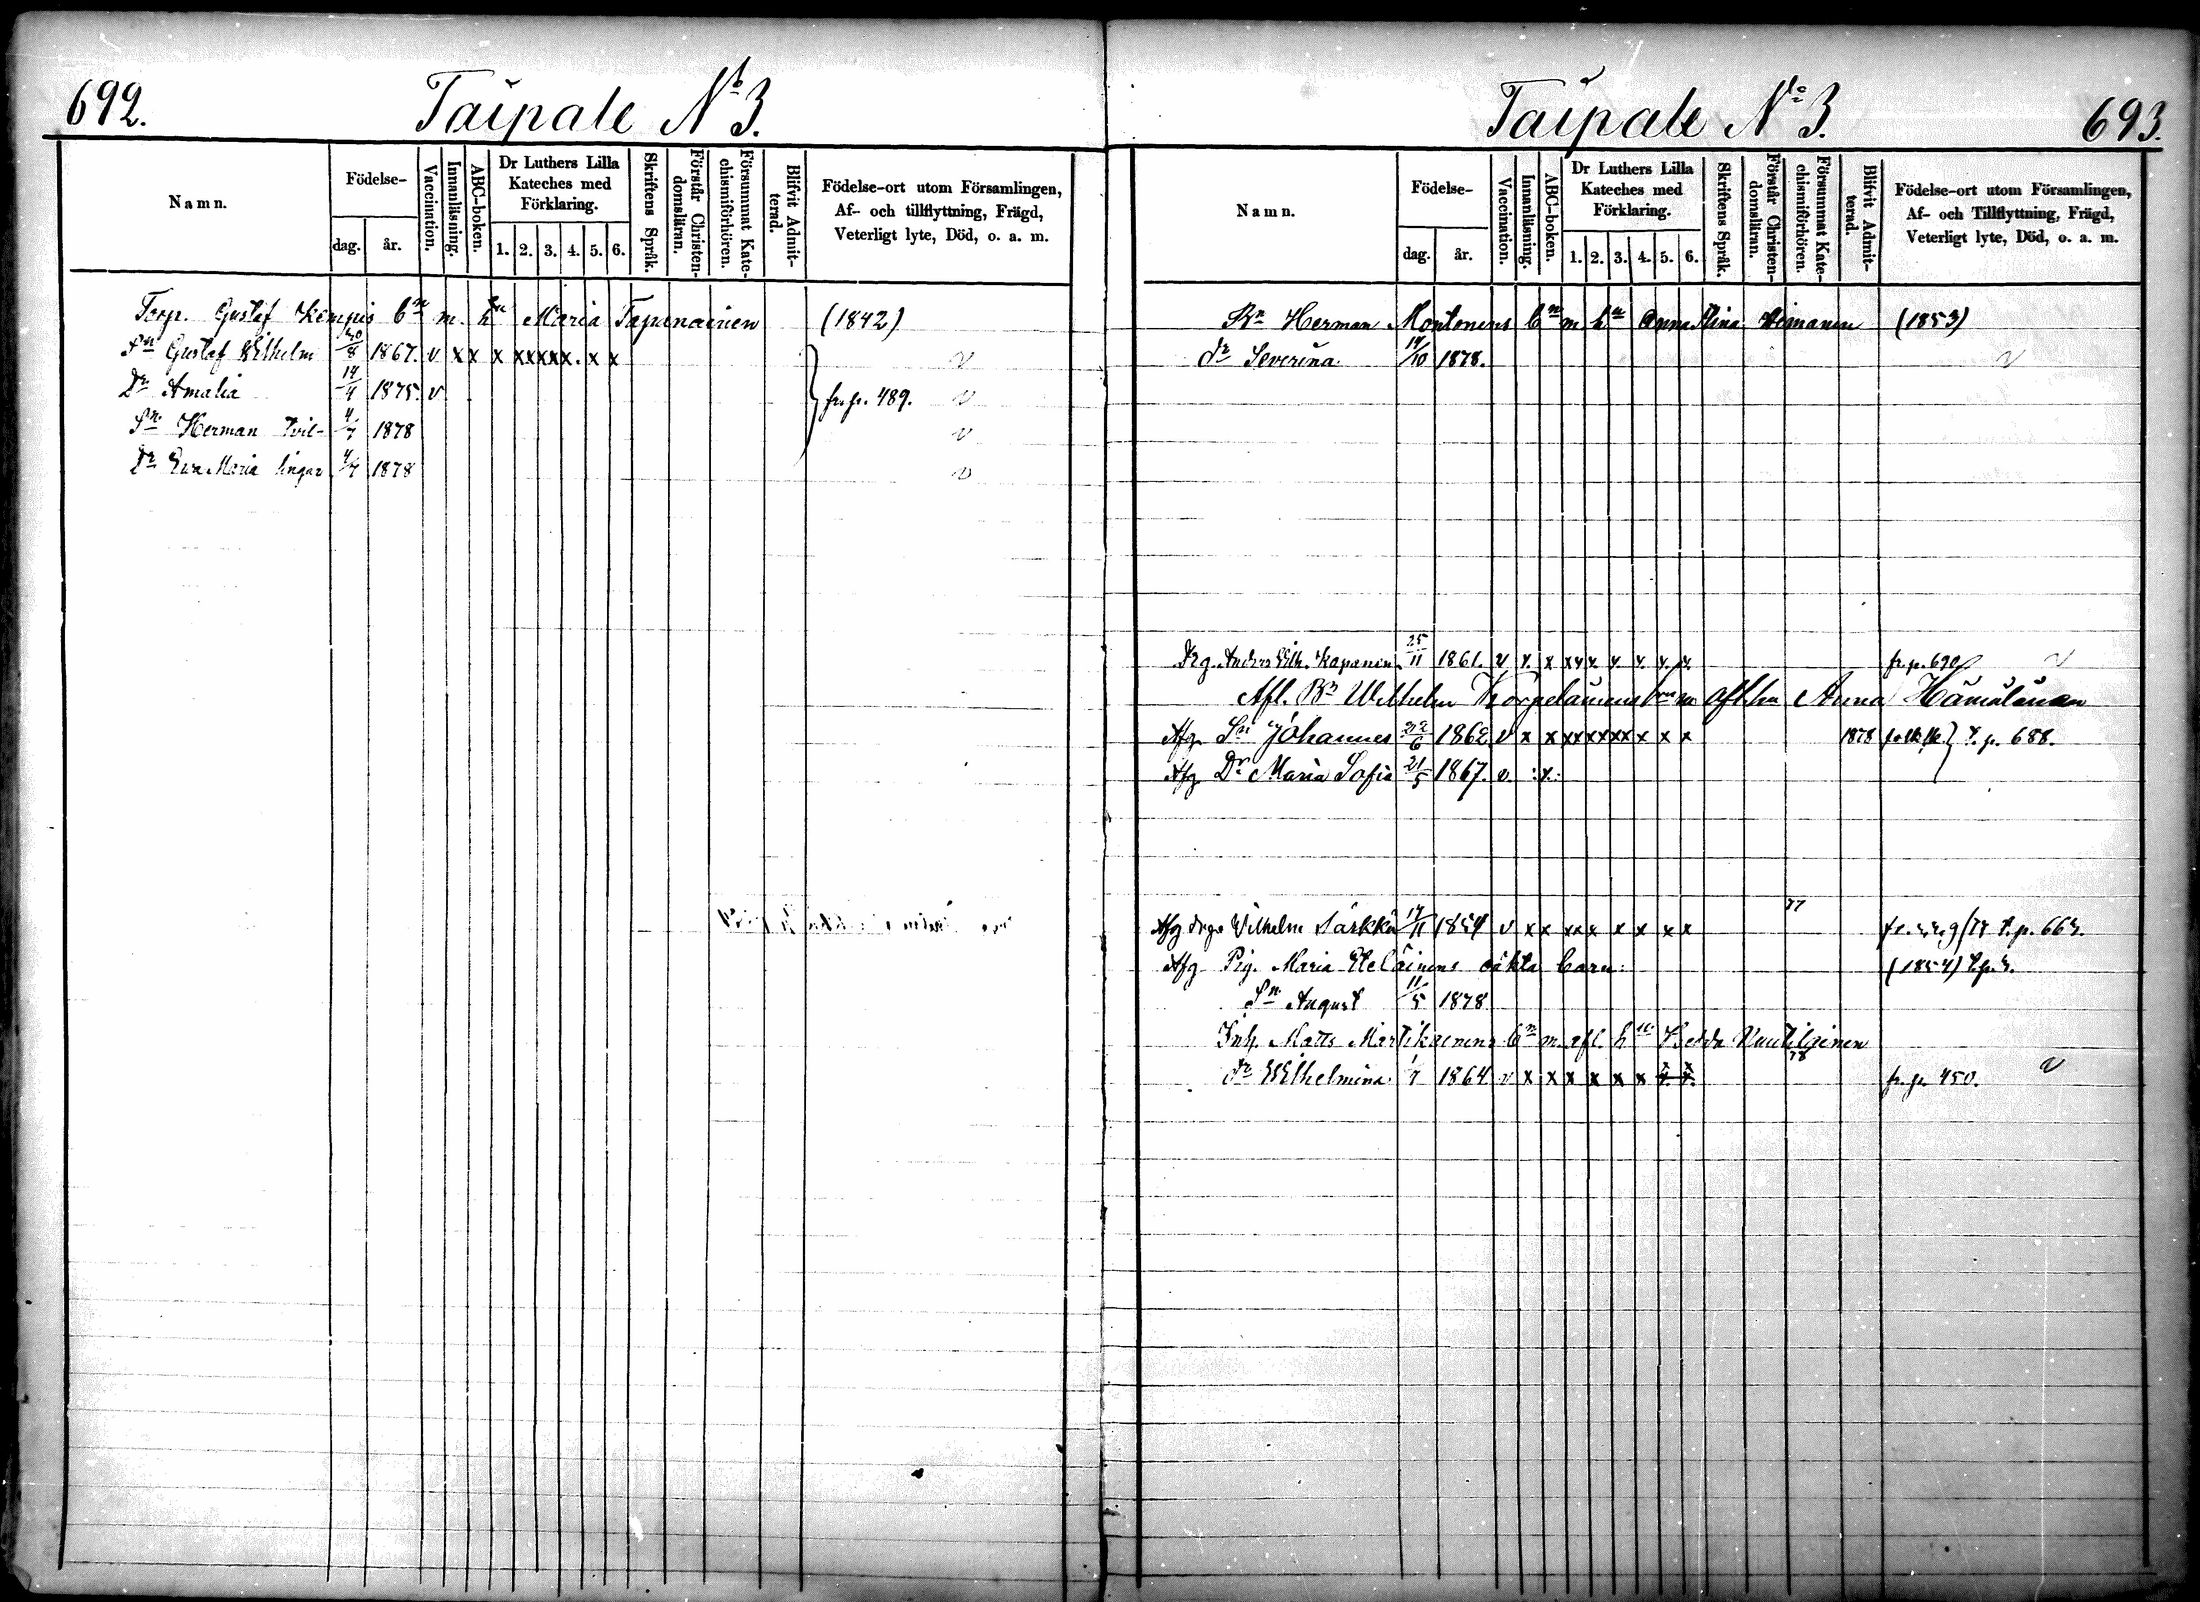 692.
Taipale No 3.
Namn.
Födelse-
dag.
år.
Vaccination.
Innanläsning.
ABC-boken.
Dr Luthers Lilla
Kateches med
Förklaring.
1. 2. 3. 4. 5. 6.
Skriftens Språk.
Förstår Christen-
domsläran.
Försummat Kate-
chismiförhören.
Blifvit Admit-
terad.
Födelse-ort utom Församlingen,
Af- och tillflyttning, Frägd,
Veterligt lyte, Död, o. a. m.
Torp. Gustaf Kempis bn m. hu Maria Tapanainen (1842)
Sn Gustaf Wilhelm 20/8 1867. v x x x x x x x x. x x v
Dr Amalia 14/4 1875. v fr. p. 489. v
Sn Herman Tvil- 4/7 1878 v
Dr Eva Maria lingar 4/7 1878 v
Taipale No 3.
693.
Namn.
Födelse-
dag.
år.
Vaccination.
Innanläsning.
ABC-boken.
Dr Luthers Lilla
Kateches med
Förklaring.
1. 2. 3. 4. 5. 6.
Skriftens Språk.
Förstår Christen-
domsläran.
Försummat Kate-
chismiförhören.
Blifvit Admit-
terad.
Födelse-ort utom Församlingen,
Af- och Tillflyttning, Frägd,
Veterligt lyte, Död, o. a. m.
Bn Herman Montonens bn m hu Anna Stina (1853)
dr Severina 14/10 1878. v
Drg. Anders Wilh. Kapanen 25/11 1861. v x. x x x x x. x. x. x. fr. p. 690 v
Afl. Bn Wilhelm Korpelainens bn m afl. hu Anna Hämäläinen
Afg. Sn Johannes 22/6 1862 v x x x x x x x x x x x 1878 t. p. 688.
Afg. Dr Maria Sofia 21/5 1867. v. :x:
Afg drg. Wilhelm Särkkä 17/11 1854 v x x x x x x x x x 77 t. p. 663.
Afg Pig. Maria Eteläinens oäkta barn: (1854) t. p.
Sn August 11/5 1878
Inh. Matts Martikainens bn m. afl. hu Hedda Nuutilainen
dr Wilhelmina 1/7 1864 v x x x x x x x x 78 fr. p. 450. v